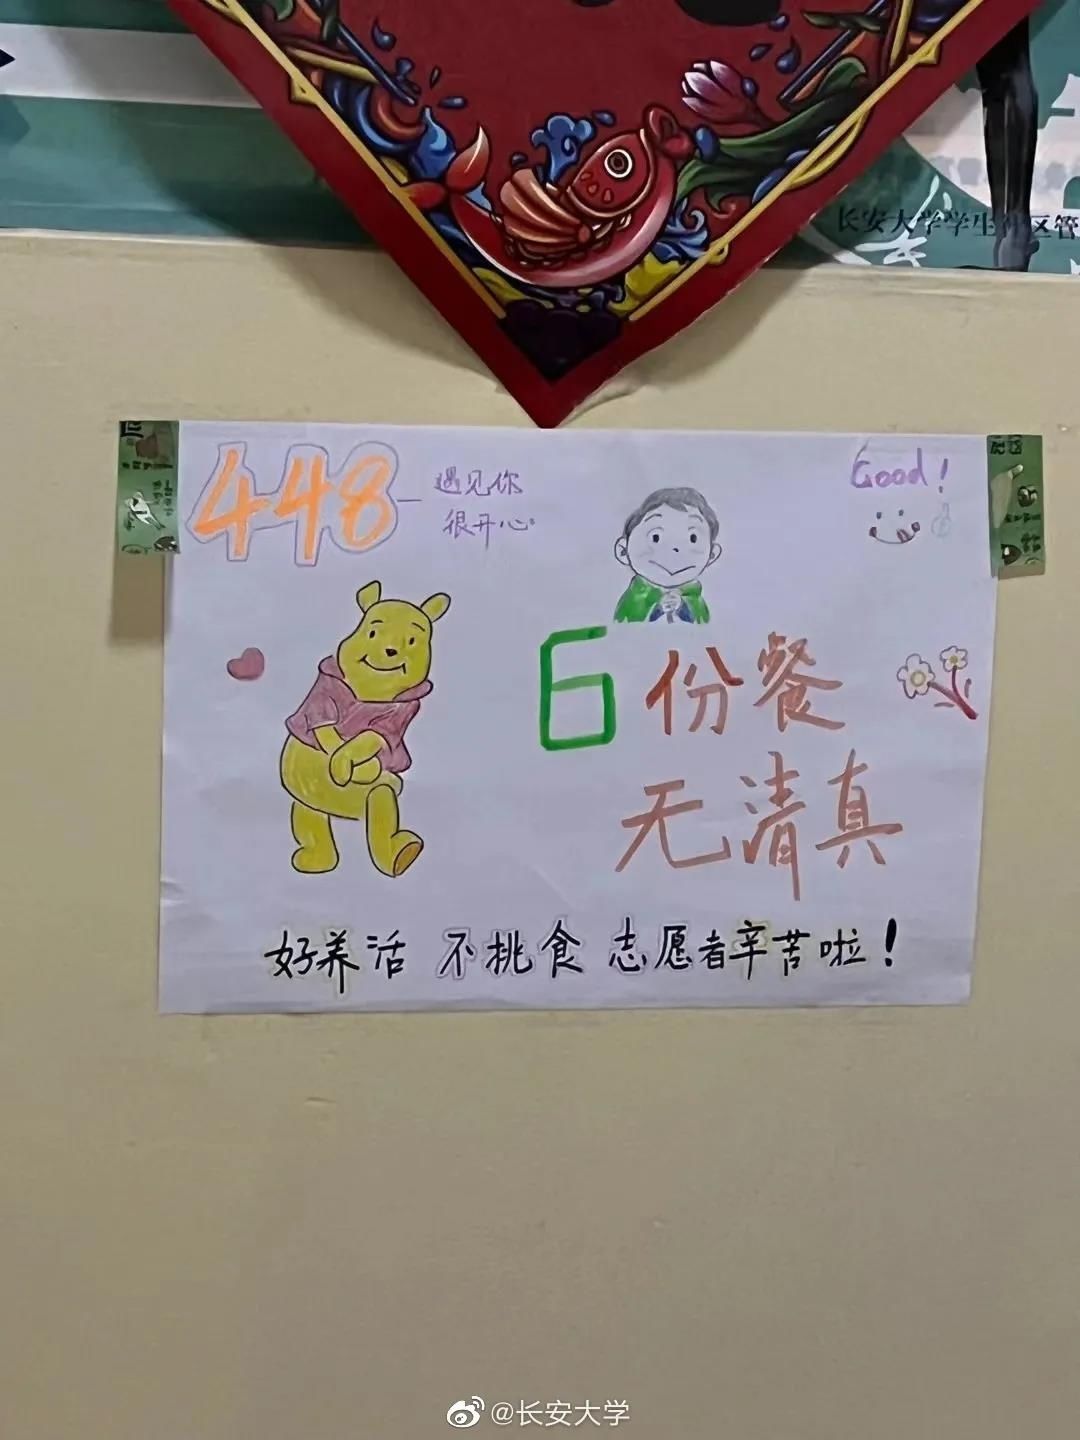 长安大学学生社区管
448
遇见你
很开心。
Good!
6份餐
无清真
好养活 不挑食 志愿者辛苦啦!
@长安大学